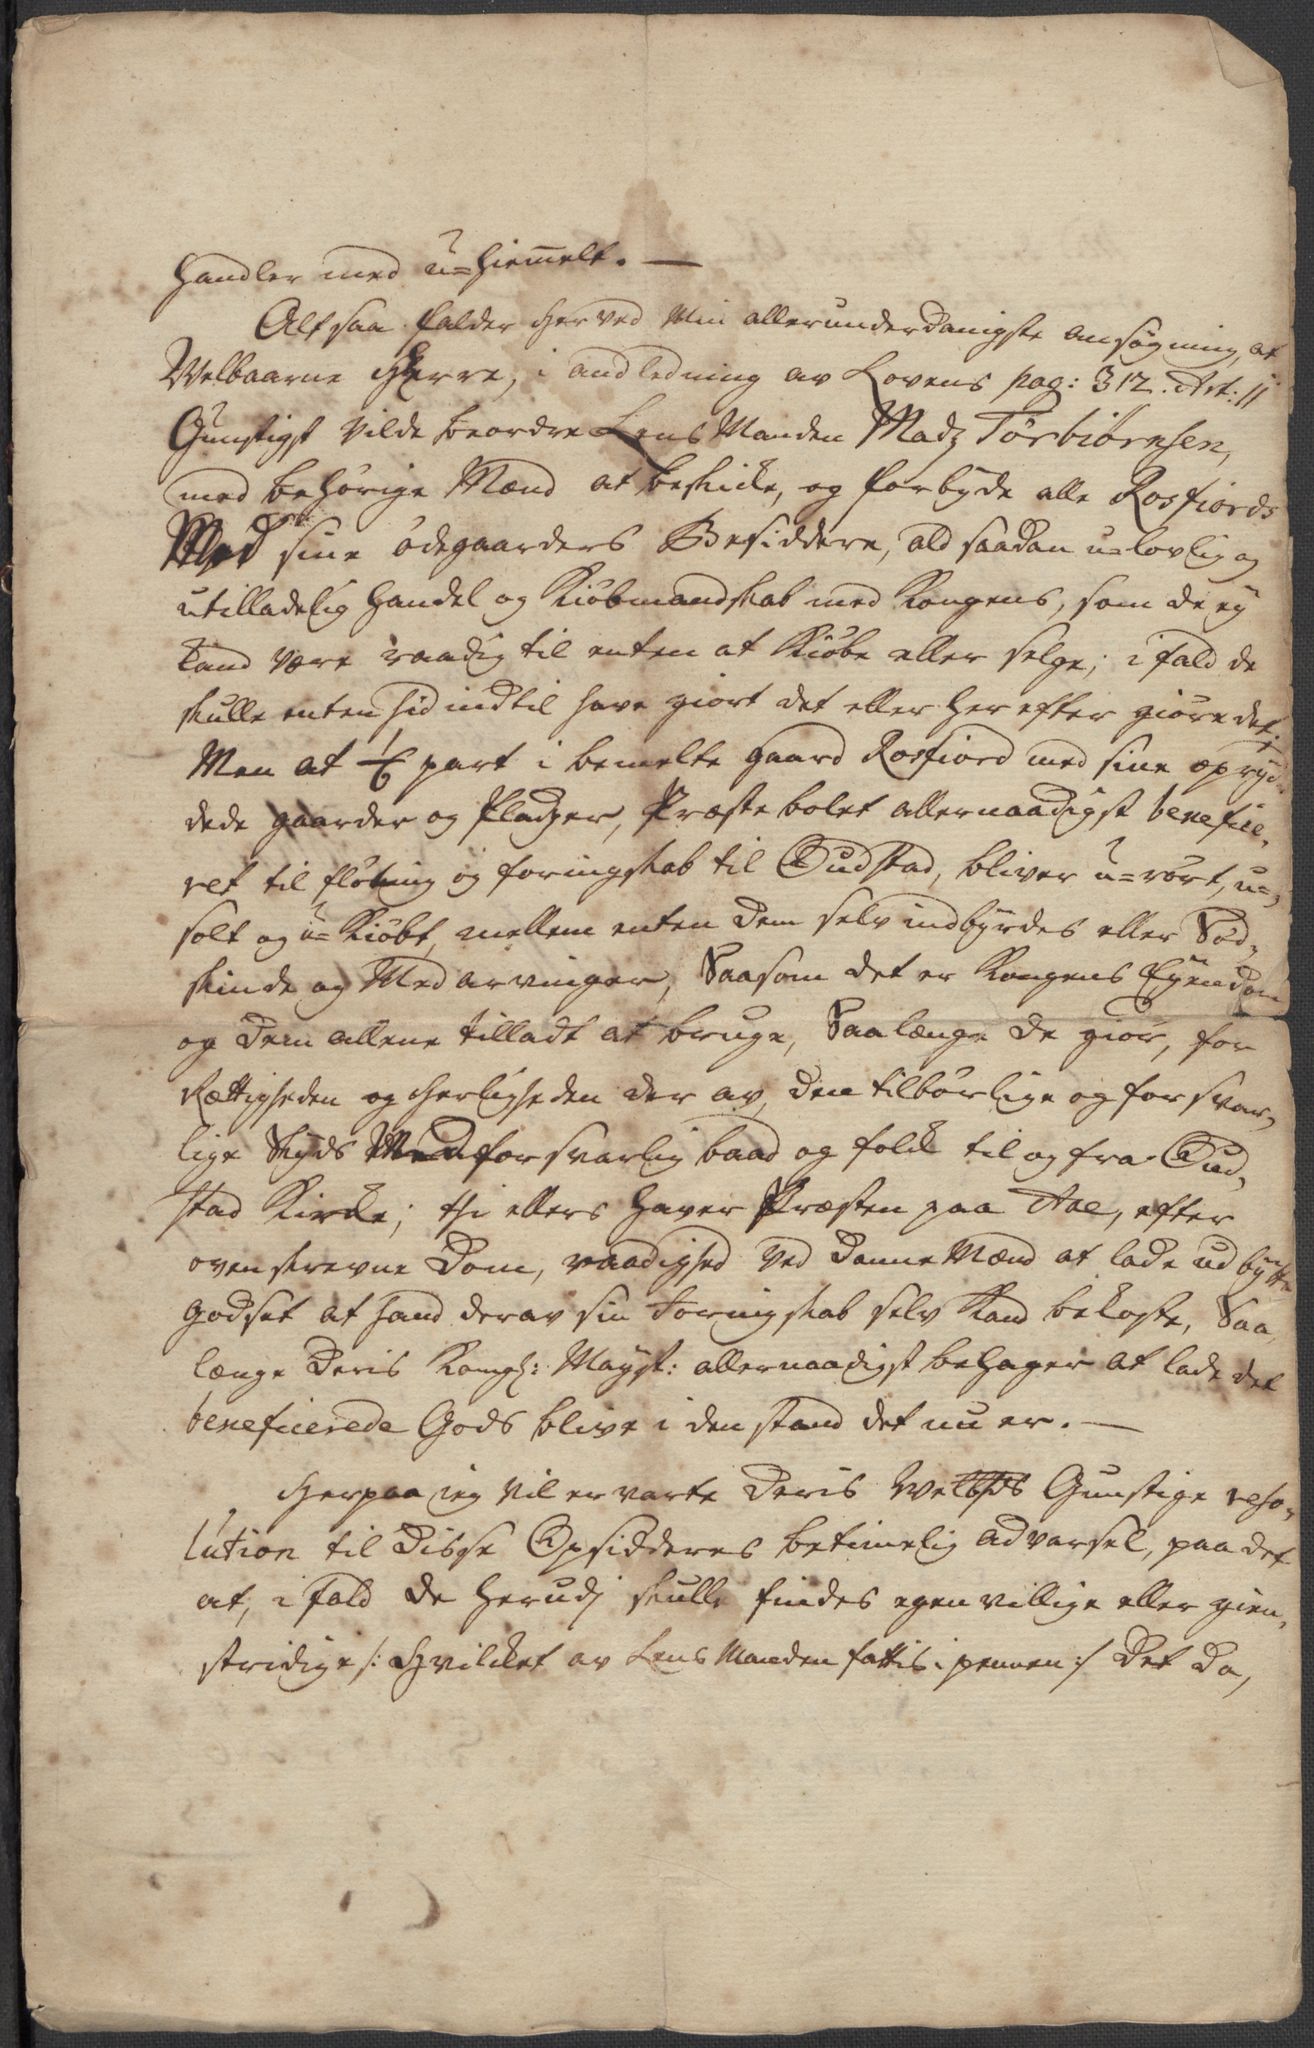 handler med u=hiemmelt. —
Altsaa falder herved Min allerunderdanigste ansøgning, at
Welbaarne Herre, i andledning av Lovens pag: 312. Art: 11
Gunstigst vilde beordre LensManden Madz Torbiørnsen,
med behørige Mænd at beskicke, og forbyde alle Rosfiords
Med sine ødegaarders Besiddere, ald saadan u=lovlig og
utilladelig handel og Kiøbmandskab med Kongens, som de ey
kand være raadig til enten at Kiøbe eller selge; i fald de
skulle enten hid indtil have giort det eller her efter giøre det.
Men at part i bemelte gaard Rosfiord med sine opryd-
dede gaarder og Pladzer, Præstebolet allernaadigst beneficie-
ret til fløtning og foringskab til Oudstad, bliver u=rørt, u=
solt og u=Kiøbt, mellem enten dem selv indbyrdes eller Sød-
skinde og Med arvinger, Saasom det er Kongens Eyendom
og dem allene tilladt at bruge, Saalænge de giør, for
Rættigheden og herligheden der av, den tilbørlige og forsvar-
lige Skyds Med forsvarlig baad og folck til og fra Oud-
stad Kircke; thi ellers haver Præsten paa Aae, efter
ovenskrevne Dom, raadighed ved DanneMænd at lade udbytte
Godset at hand derav sin foringskab selv kand bekoste, Saa
længe Deris Kongl: Mayst: allernaadigst behager at lade det
beneficerede Gods blive i den stand det nu er. —
Herpaa ieg vil ervarte Deris Gunstige reso-
lution til disse Opsidderes betimelig advarsel, paa det
at, i fald de herudj skulle findes egenvillige eller gien-
stridige /: hvilcket av LensManden fattis i pennen :/ det da,